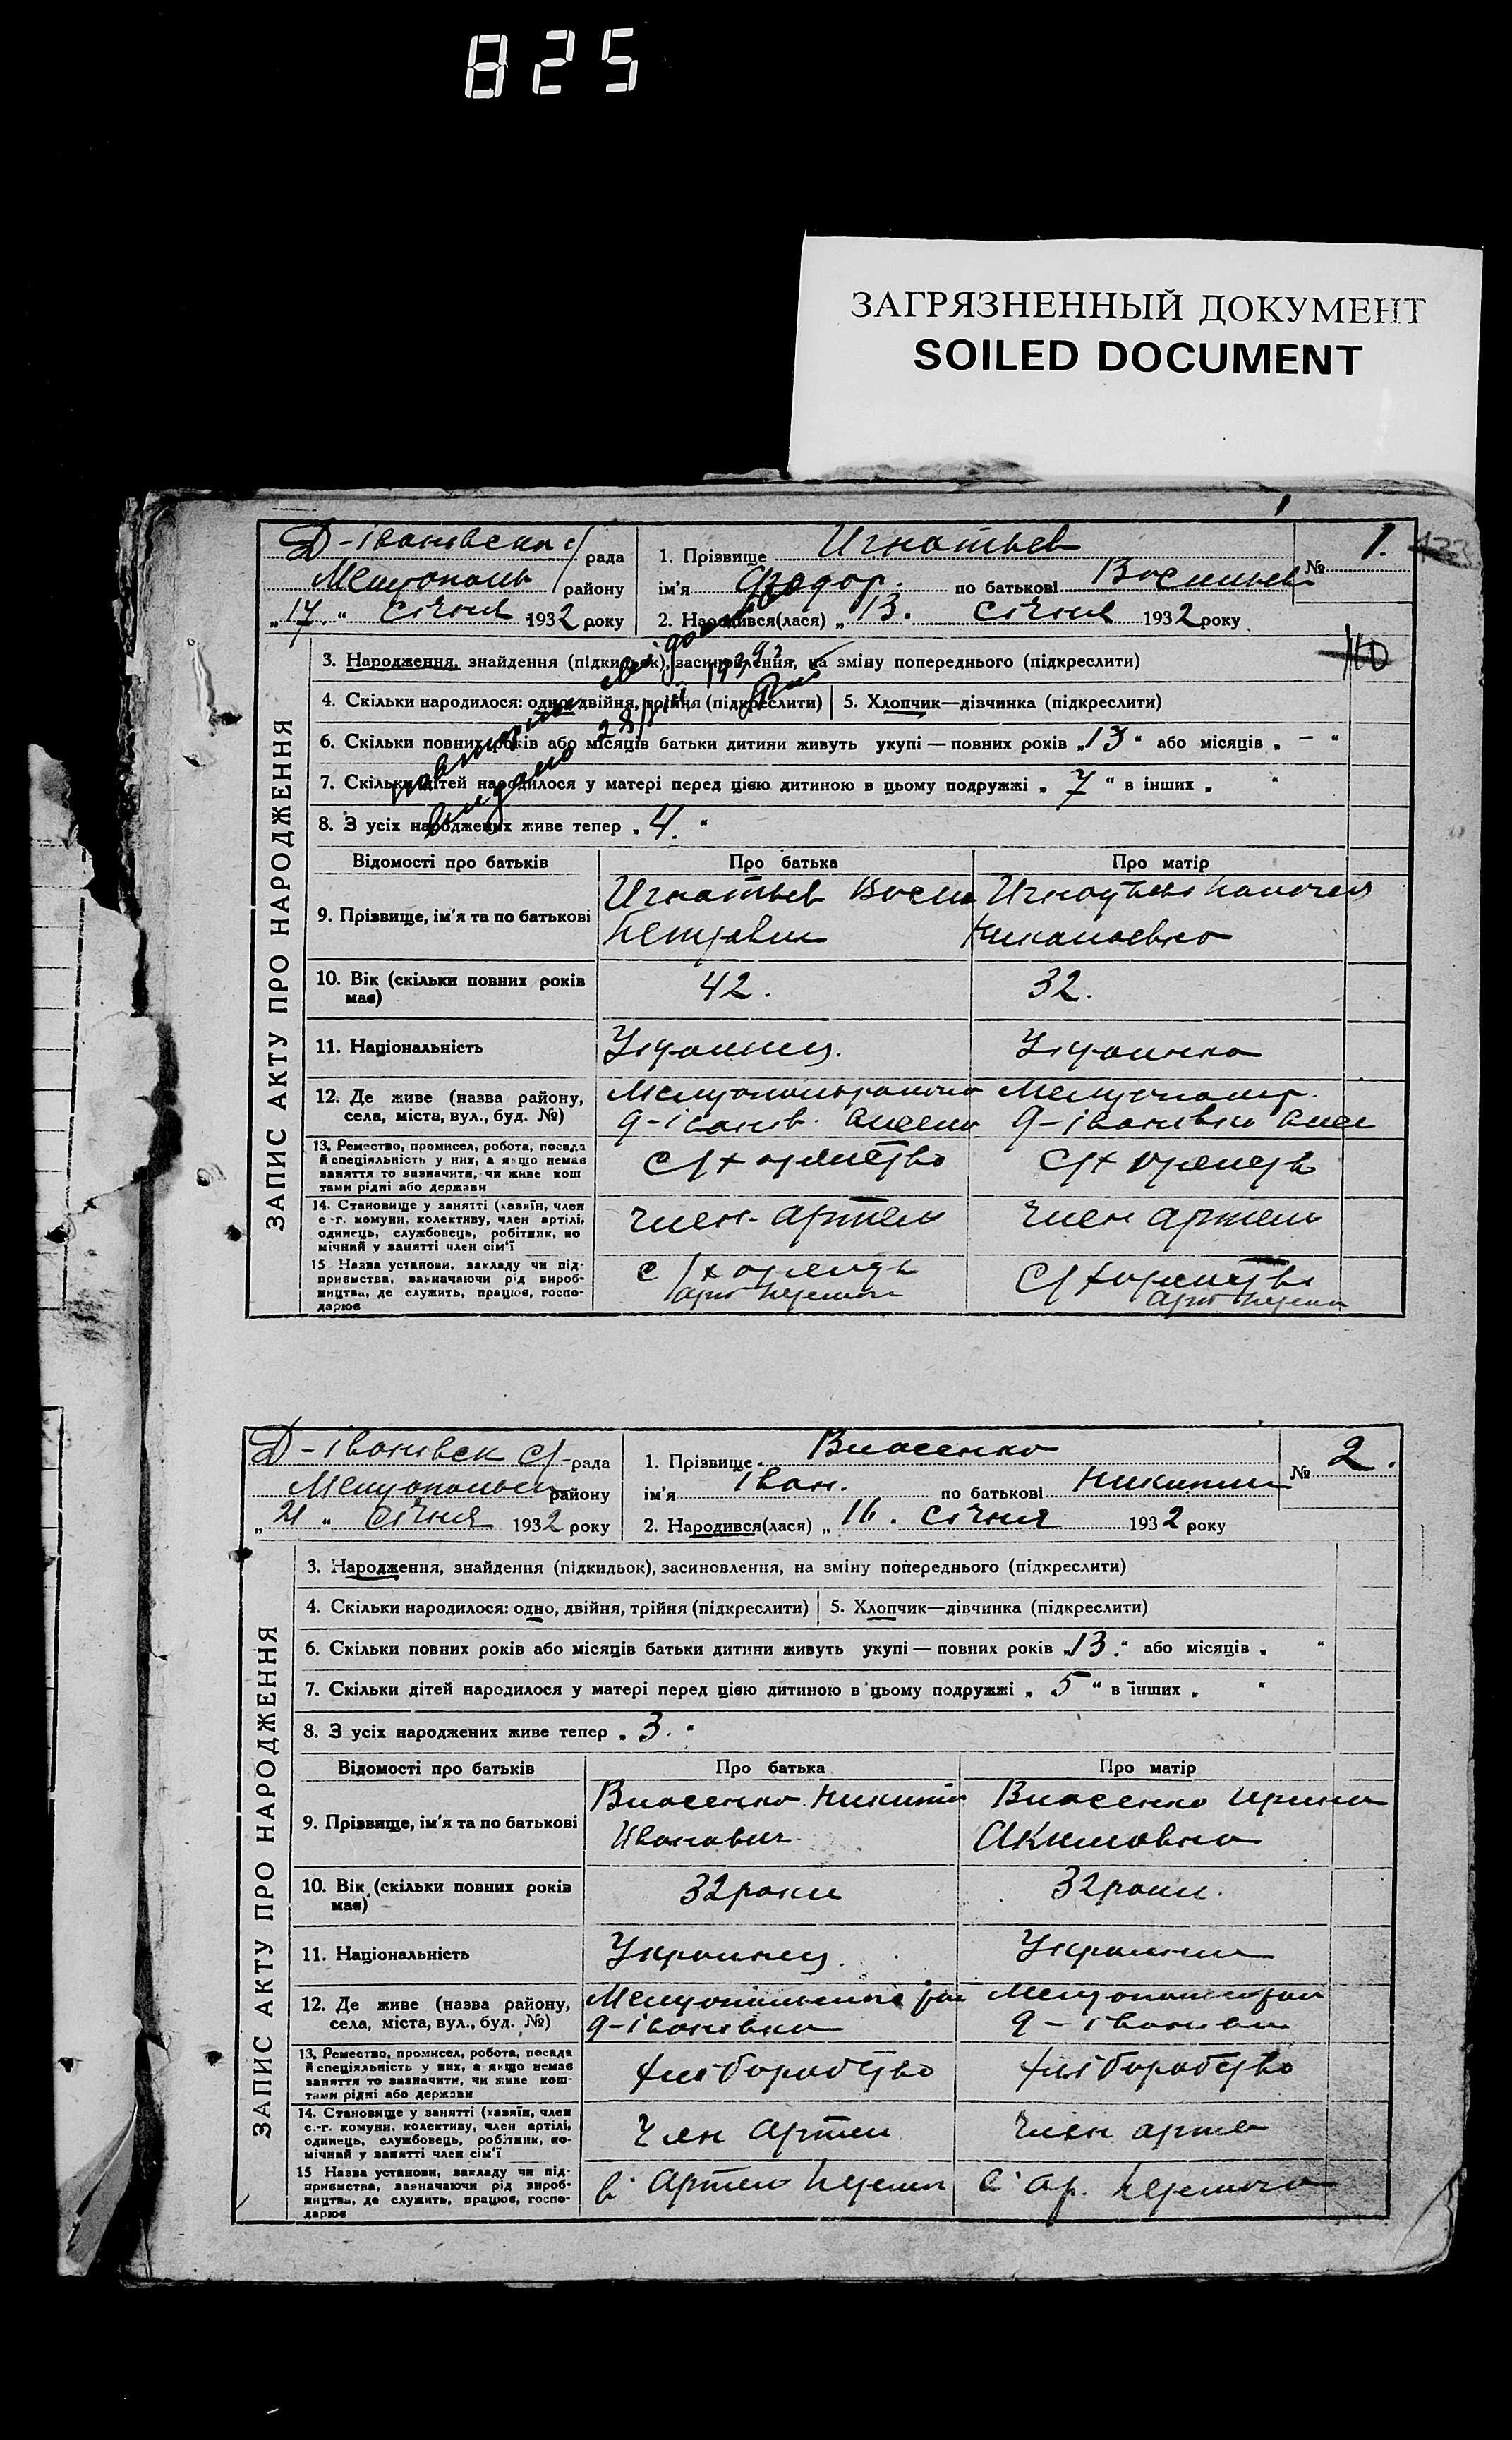 825
ЗАГРЯЗНЕННЫЙ ДОКУМЕНТ
SOILED DOCUMENT
Д-івановська с/рада
1. Прізвище Игнатьев
№ 1.
Мелитополь району
ім'я Федор. по батькові Васильев
„17.“ січня 1932 року
2. Народився(лася) „13. січня 1932 року
ЗАПИС АКТУ ПРО НАРОДЖЕННЯ
3. Народження, знайдення (підкидьок), засиновлення, на зміну попереднього (підкреслити)
4. Скільки народилося: одно, двійня, трійня (підкреслити) 5. Хлопчик—дівчинка (підкреслити)
6. Скільки повних років або місяців батьки дитини живуть укупі — повних років „13“ або місяців „ – “
7. Скільки дітей народилося у матері перед цією дитиною в цьому подружжі „7“ в інших „ “
8. З усіх народжених живе тепер „4.“
видано 28/
Відомості про батьків Про батька Про матір
9. Прізвище, ім'я та по батькові
Игнатьев Васил
Петрович
10. Вік (скільки повних років має) 42. 32.
11. Національність Украинец. Украинка
12. Де живе (назва району, села, міста, вул., буд. №)
Д-іванів. Д-іванівка
13. Ремество, промисел, робота, посада
й спеціяльність у них, а якщо немає
заняття то зазначити, чи живе кош
тами рідні або держави
14. Становище у занятті (хазяїн, член
с.-г. комуни, колективу, член артілі,
одинець, службовець, робітник, по
мічний у занятті член сім'ї
член артели член артели
15 Назва установи, закладу чи під-
приємства, зазначаючи рід вироб-
ництва, де служить, працює, госпо-
дарює
Д-івановск с/-рада
1. Прізвище Власенко
№ 2.
Мелитопольск району
ім'я Іван. по батькові Никитич
„21“ січня 1932 року
2. Народився(лася) „16. січня 1932 року
ЗАПИС АКТУ ПРО НАРОДЖЕННЯ
3. Народження, знайдення (підкидьок), засиновлення, на зміну попереднього (підкреслити)
4. Скільки народилося: одно, двійня, трійня (підкреслити) 5. Хлопчик—дівчинка (підкреслити)
6. Скільки повних років або місяців батьки дитини живуть укупі — повних років „13.“ або місяців „ “
7. Скільки дітей народилося у матері перед цією дитиною в цьому подружжі „5“ в інших „ “
8. З усіх народжених живе тепер „3.“
Відомості про батьків Про батька Про матір
9. Прізвище, ім'я та по батькові
Власенко Никита Власенко Ирина
Иванович Акимовна
10. Вік (скільки повних років має) 32 роки 32 роки.
11. Національність Украинец.
12. Де живе (назва району, села, міста, вул., буд. №)
Д-іванівка Д-іванівка
13. Ремество, промисел, робота, посада
й спеціяльність у них, а якщо немає
заняття то зазначити, чи живе кош-
тами рідні або держави
хліборобство хліборобство
14. Становище у занятті (хазяїн, член
с.-г. комуни, колективу, член артілі,
одинець, службовець, робітник, по-
мічний у занятті член сім'ї
Член артели член арте
15 Назва установи, закладу чи під-
приємства, зазначаючи рід вироб-
ництва, де служить, працює, госпо-
дарює